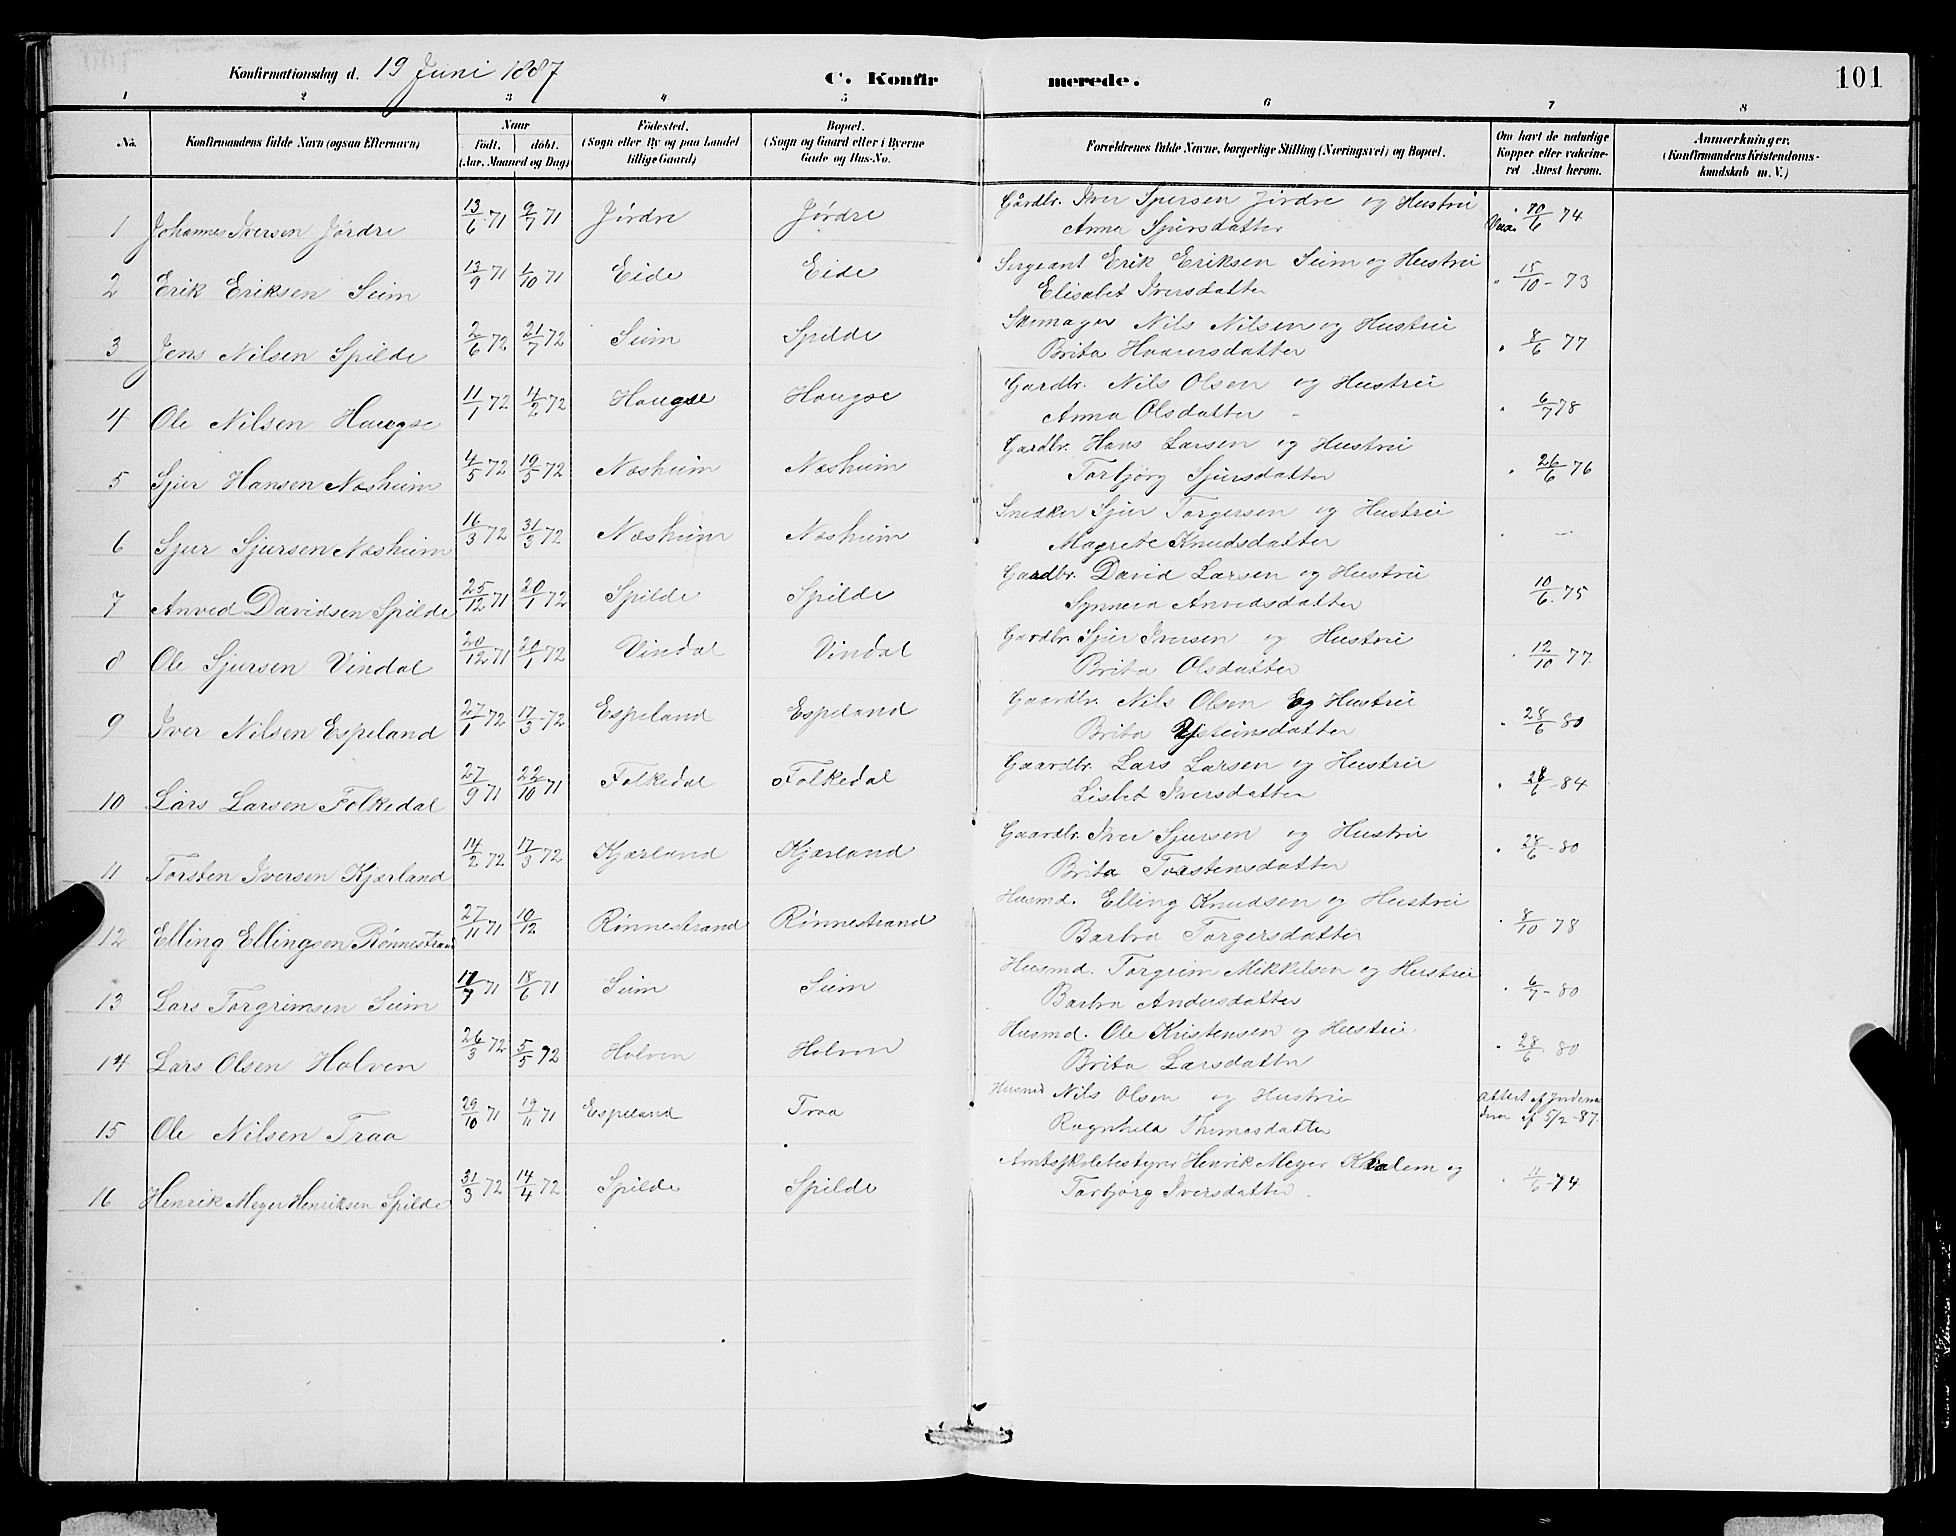 Konfirmationsdag d. 19 Juni 1887 C. Konfirmerede. 101
1 2 3 4 5 6 7 8
No. Konfirmandens fulde Navn (ogsaa Efternavn) Naar født. døbt. (Aar, Maaned og Dag) Fødested. (Sogn eller By og paa Landet tillige Gaard) Bopæl. (Sogn og Gaard eller i Byerne Gade og Hus-No. Forældrenes fulde Navne, borgerlige Stilling (Næringsvei) og Bopæl. Om havt de naturlige Kopper eller vakcineret Attest herom. Anmærkninger. (Konfirmandens Kristendomskundskab m. V.)
1 Johannes Iversen Jørdre 13/6 71 9/7 71 Jørdre Jørdre Gårdbr. Iver Sjursen Jørdre og Hustru Vac. 6 74
Anna Sjursdatter
2 Erik Eriksen Seim 13/9 71 1/10 71 Eide Eide Sergeant Erik Eriksen Seim og Hustru " 15/10 - 73
Elisabet Iversdatter
3 Jens Nilsen Spilde 2/6 72 21/7 72 Seim Spilde Skomager Nils Nilsen og Hustru " 8/6 77
Brita Haaversdatter
4 Ole Nilsen Haugse 11/1 72 4/2 72 Haugse Haugse Gardbr. Nils Olsen og Hustru " 6/7 78
Anna Olsdatter
5 Sjur Hansen Næsheim 4/5 72 19/5 72 Næsheim Næsheim Gardbr. Hans Larsen og Hustru " 26/6 76
Torbjørg Sjursdatter
6 Sjur Sjursen Næsheim 16/3 72 31/3 72 Næsheim Næsheim Snedker Sjur Torgersen og Hustru " —
Magrete Knudsdatter
7 Anved Davidsen Spilde 25/12 71 20/1 72 Spilde Spilde Gardbr. David Larsen og Hustru 10/6. 75
Synneva Anvedsdatter
8 Ole Sjursen Vindal 20/12 71 21/1 72 Vindal Vindal Gardbr. Sjur Iversen og Hustru " 12/10 77.
Brita Olsdatter
9 Iver Nilsen Espeland 27/1 72 17/3 - 72 Espeland Espeland Gaardbr. Nils Olsen og Hustru " 28/6 80
Brita Ysteinsdatter
10 Lars Larsen Folkedal 27/9 71 22/10 71 Folkedal Folkedal Gaardbr. Lars Larsen og Hustru " 28/6 - 84
Lisbet Iversdatter
11 Torsten Iversen Kjærland 14/2 72 17/3 72 Kjærland Kjærland Gaardbr. Iver Sjursen og Hustru " 28/6 - 80
Brita Torstensdatter
12 Elling Ellingsen Rønnestrand 27/11 71 10/12 Rønnestrand Rønnestrand Husmd. Elling Knudsen og Hustru " 8/10 - 78
Barbra Torgersdatter
13 Lars Torgrimsen Seim 71 18/6 71 Seim Seim Husmd. Torgrim Mikkelsen og Hustru " 6/7 - 80
Barbra Andersdatter
14 Lars Olsen Holven 26/3 72 5/5 72 Holven Holven Husmd. Ole Kristensen og Hustru " 28/6 80
Brita Larsdatter
15 Ole Nilsen Traa 29/10 71 19/11 71 Espeland Traa Husmd Nils Olsen og Hustru Attest af Jordemoderen af 5/2 - 87.
Ragnhild Thomasdatter
16 Henrik Meyer Henriksen Spilde 31/3 72 14/4 72 Spilde Spilde Amtsskolebestyrer Henrik Meyer og " 11/6 - 74
Torbjørg Iversdatter.